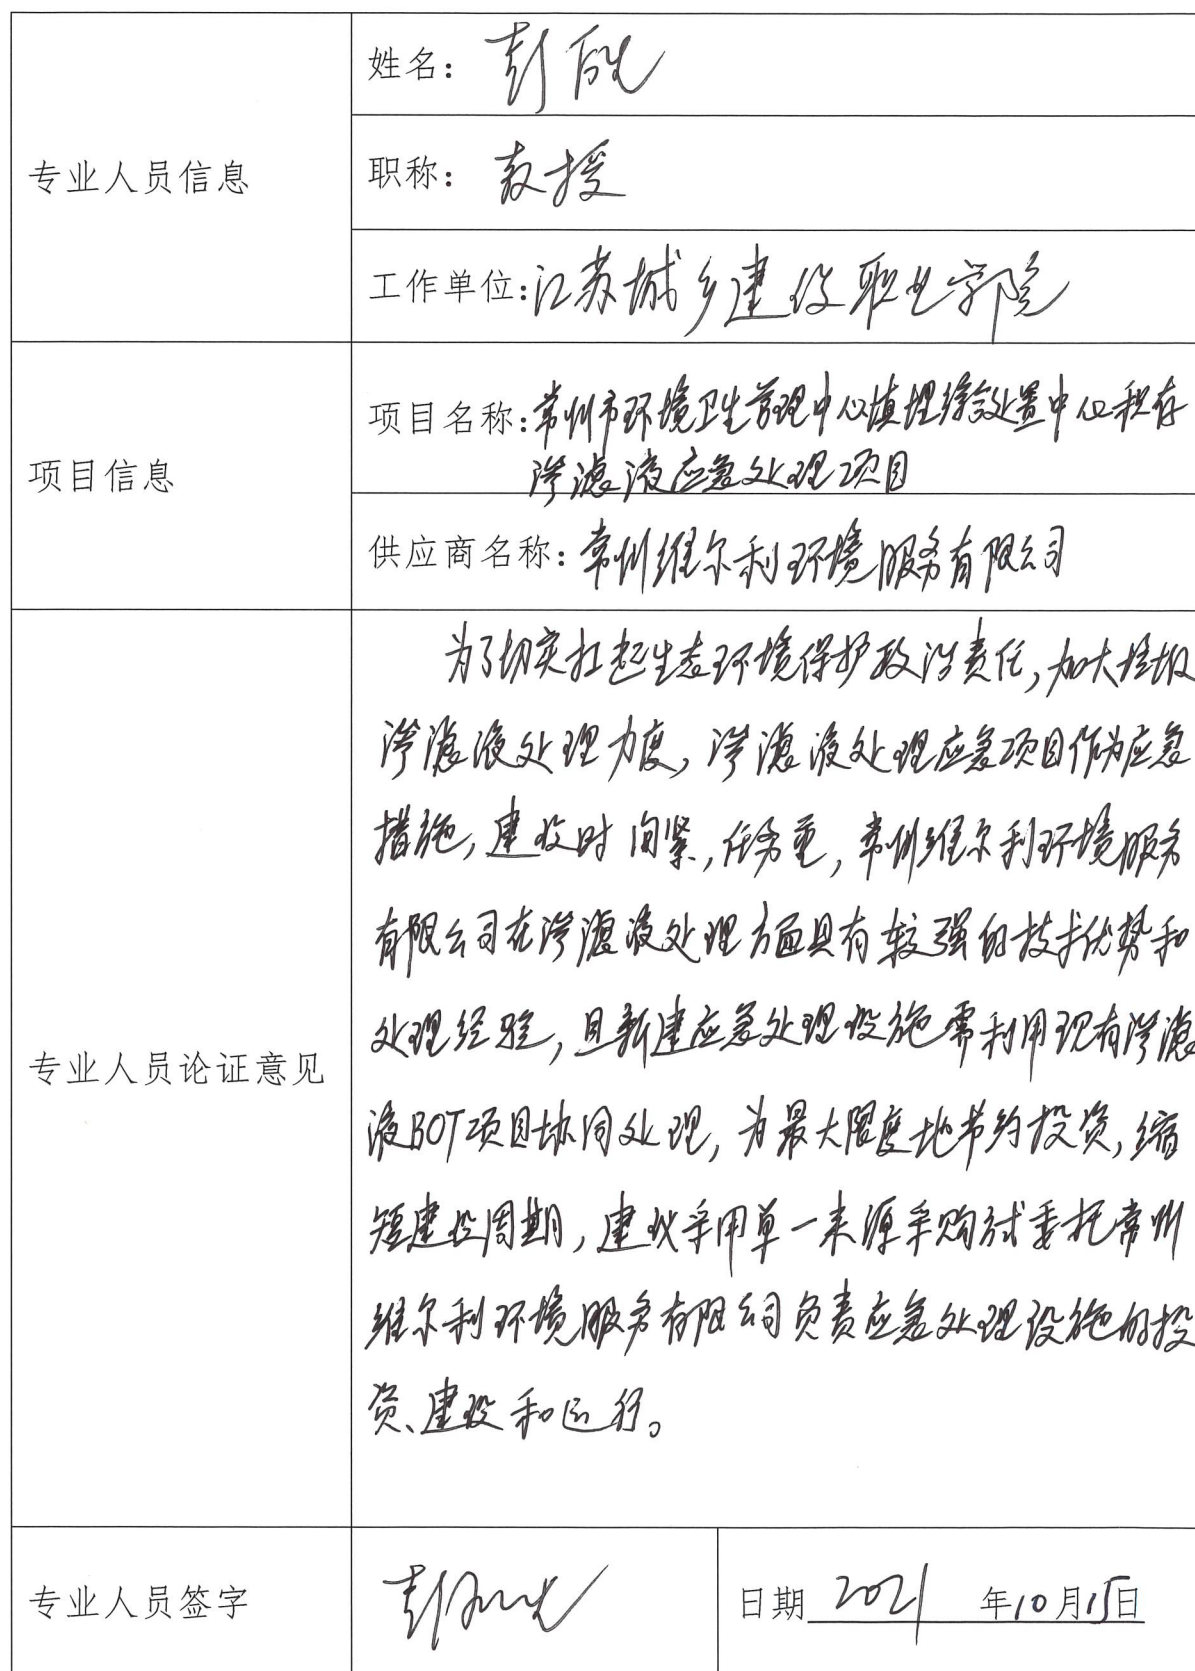 姓名：彭
专业人员信息
职称：教授
工作单位:江苏城乡建设职业学院
项目信息
项目名称:常州市环境卫生管理中心填埋综合处置中心积存
渗滤液应急处理项目
供应商名称：常州维尔利环境服务有限公司
为了切实扛起生态环境保护政治责任,加大垃圾
渗滤液处理力度,渗滤液处理应急项目作为应急
措施,建设时间紧,任务重,常州维尔利环境服务
有限公司在渗滤液处理方面具有较强的技术优势和
专业人员论证意见
处理经验,且新建应急处理设施需利用现有渗滤
液BOT项目协同处理,为最大限度地节约投资,缩
短建设周期,建议采用单一来源采购方式委托常州
维尔利环境服务有限公司负责应急处理设施的投
资、建设和运行。
专业人员签字 彭
日期 2021 年10月15日